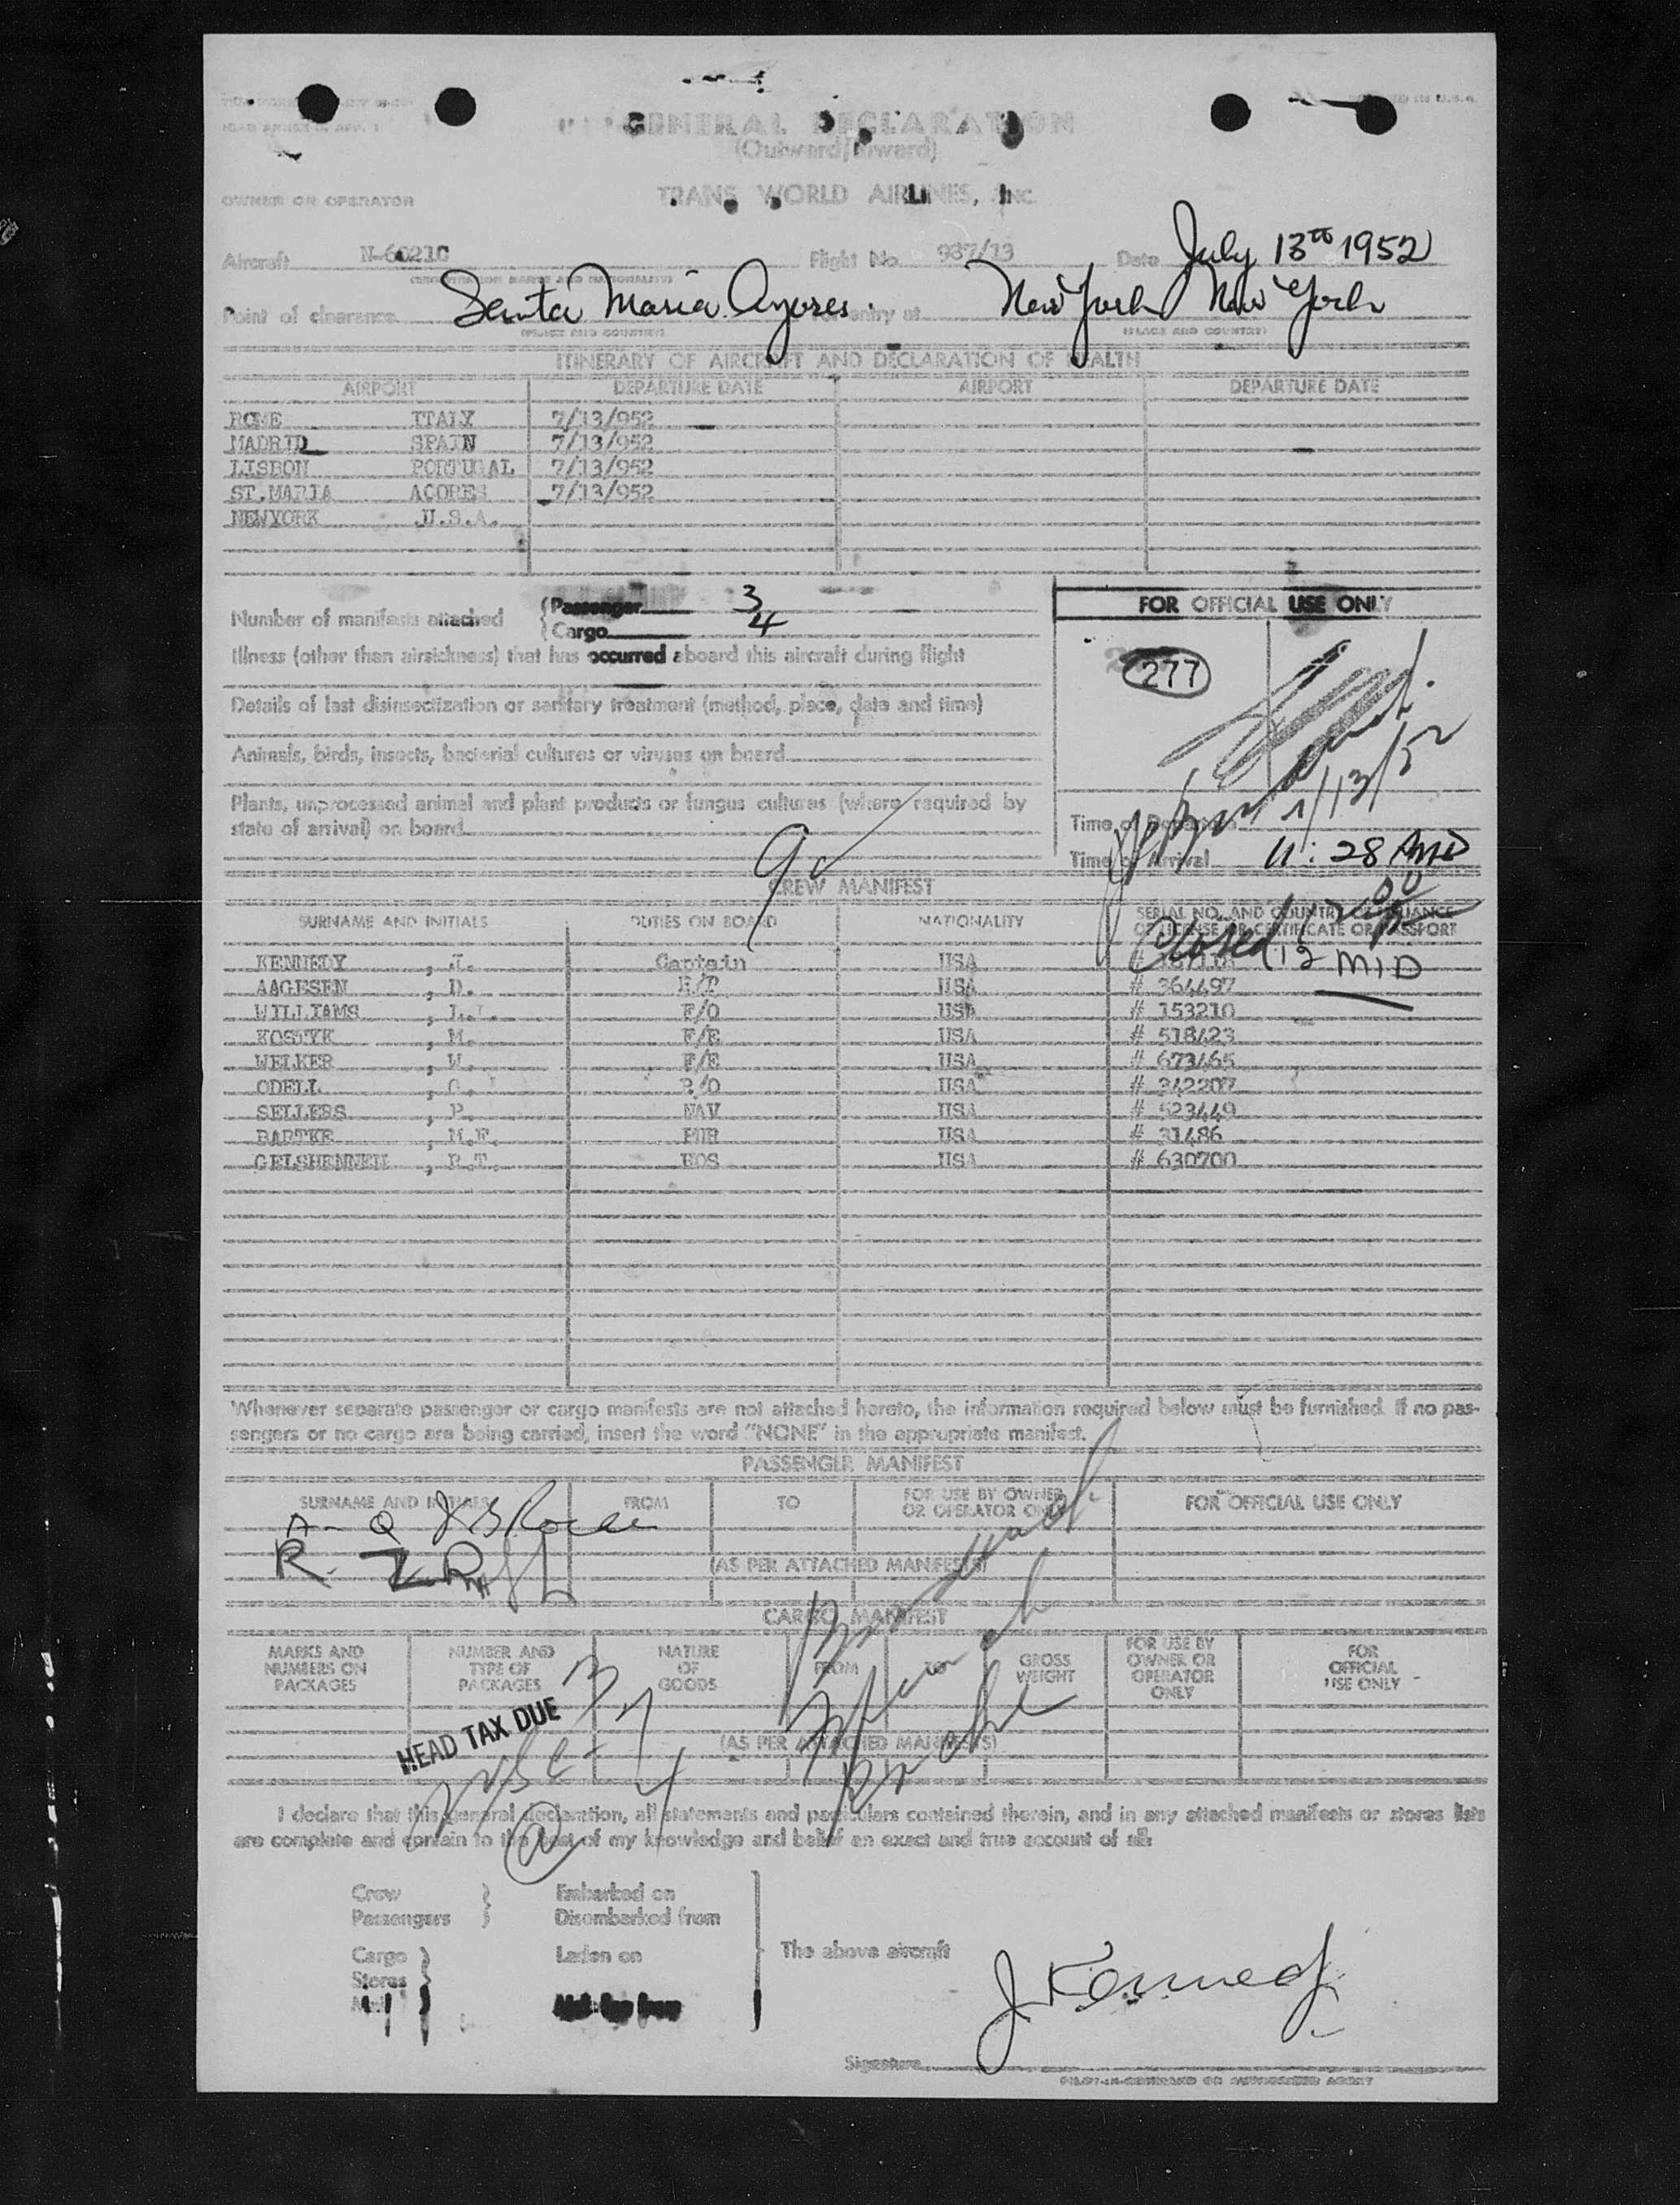 GENERAL DECLARATION
(Outward/Inward)
OWNER OR OPERATOR TRANS WORLD AIRLINES, INC.
Aircraft N-6021C Flight No. 937/13 Date July 13th 1952
Point of clearance Santa Maria Azores. For entry at New York New York
(PLACE AND COUNTRY) (PLACE AND COUNTRY)
ITINERARY OF AIRCRAFT AND DECLARATION OF HEALTH
AIRPORT DEPARTURE DATE AIRPORT DEPARTURE DATE
ROME ITALY 7/13/952
MADRID SPAIN 7/13/952
LISBON PORTUGAL 7/13/952
ST.MARIA ACORES 7/13/952
NEWYORK U.S.A.
Number of manifests attached {Passenger 3
{Cargo 4
FOR OFFICIAL USE ONLY
277
Illness (other than airsickness) that has occurred aboard this aircraft during flight
Details of last disinsectization or sanitary treatment (method, place, date and time)
Animals, birds, insects, bacterial cultures or viruses on board
Plants, unprocessed animal and plant products or fungus cultures (where required by
state of arrival) on board
7/13/52
Time of Departure
Time of Arrival 11:28
9 ✓
CREW MANIFEST
SURNAME AND INITIALS DUTIES ON BOARD NATIONALITY SERIAL NO. AND COUNTRY OF ISSUANCE
OF LICENSE OR CERTIFICATE OR PASSPORT
Closed 12 MID
KENNEDY , J. Captain USA
AAGESEN , D. USA # 364497
WILLIAMS F/O USA # 153210
KOSTYK , M. F/E USA # 518423
WELKER , W. F/E USA # 673465
ODELL , R/O USA # 342207
SELLERS , P. NAV USA # 523449
BARTKE , M.F. PUR USA # 31486
GELSHENNEN , R.T. HOS USA # 630700
Whenever separate passenger or cargo manifests are not attached hereto, the information required below must be furnished. If no pas-
sengers or no cargo are being carried, insert the word "NONE" in the appropriate manifest.
PASSENGER MANIFEST
SURNAME AND INITIALS FROM TO FOR USE BY OWNER
OR OPERATOR ONLY FOR OFFICIAL USE ONLY
A - Q
R - Z
(AS PER ATTACHED MANIFESTS)
CARGO MANIFEST
MARKS AND
NUMBERS ON
PACKAGES NUMBER AND
TYPE OF
PACKAGES NATURE
OF
GOODS FROM TO GROSS
WEIGHT FOR USE BY
OWNER OR
OPERATOR
ONLY FOR
OFFICIAL
USE ONLY
HEAD TAX DUE
(AS PER ATTACHED MANIFESTS)
I declare that this general declaration, all statements and particulars contained therein, and in any attached manifests or stores lists
are complete and contain to the best of my knowledge and belief an exact and true account of all:
Crew } Embarked on
Passengers } Disembarked from
Cargo } Laden on The above aircraft
Stores
J Kennedy
Signature
PILOT-IN-COMMAND OR AUTHORIZED AGENT